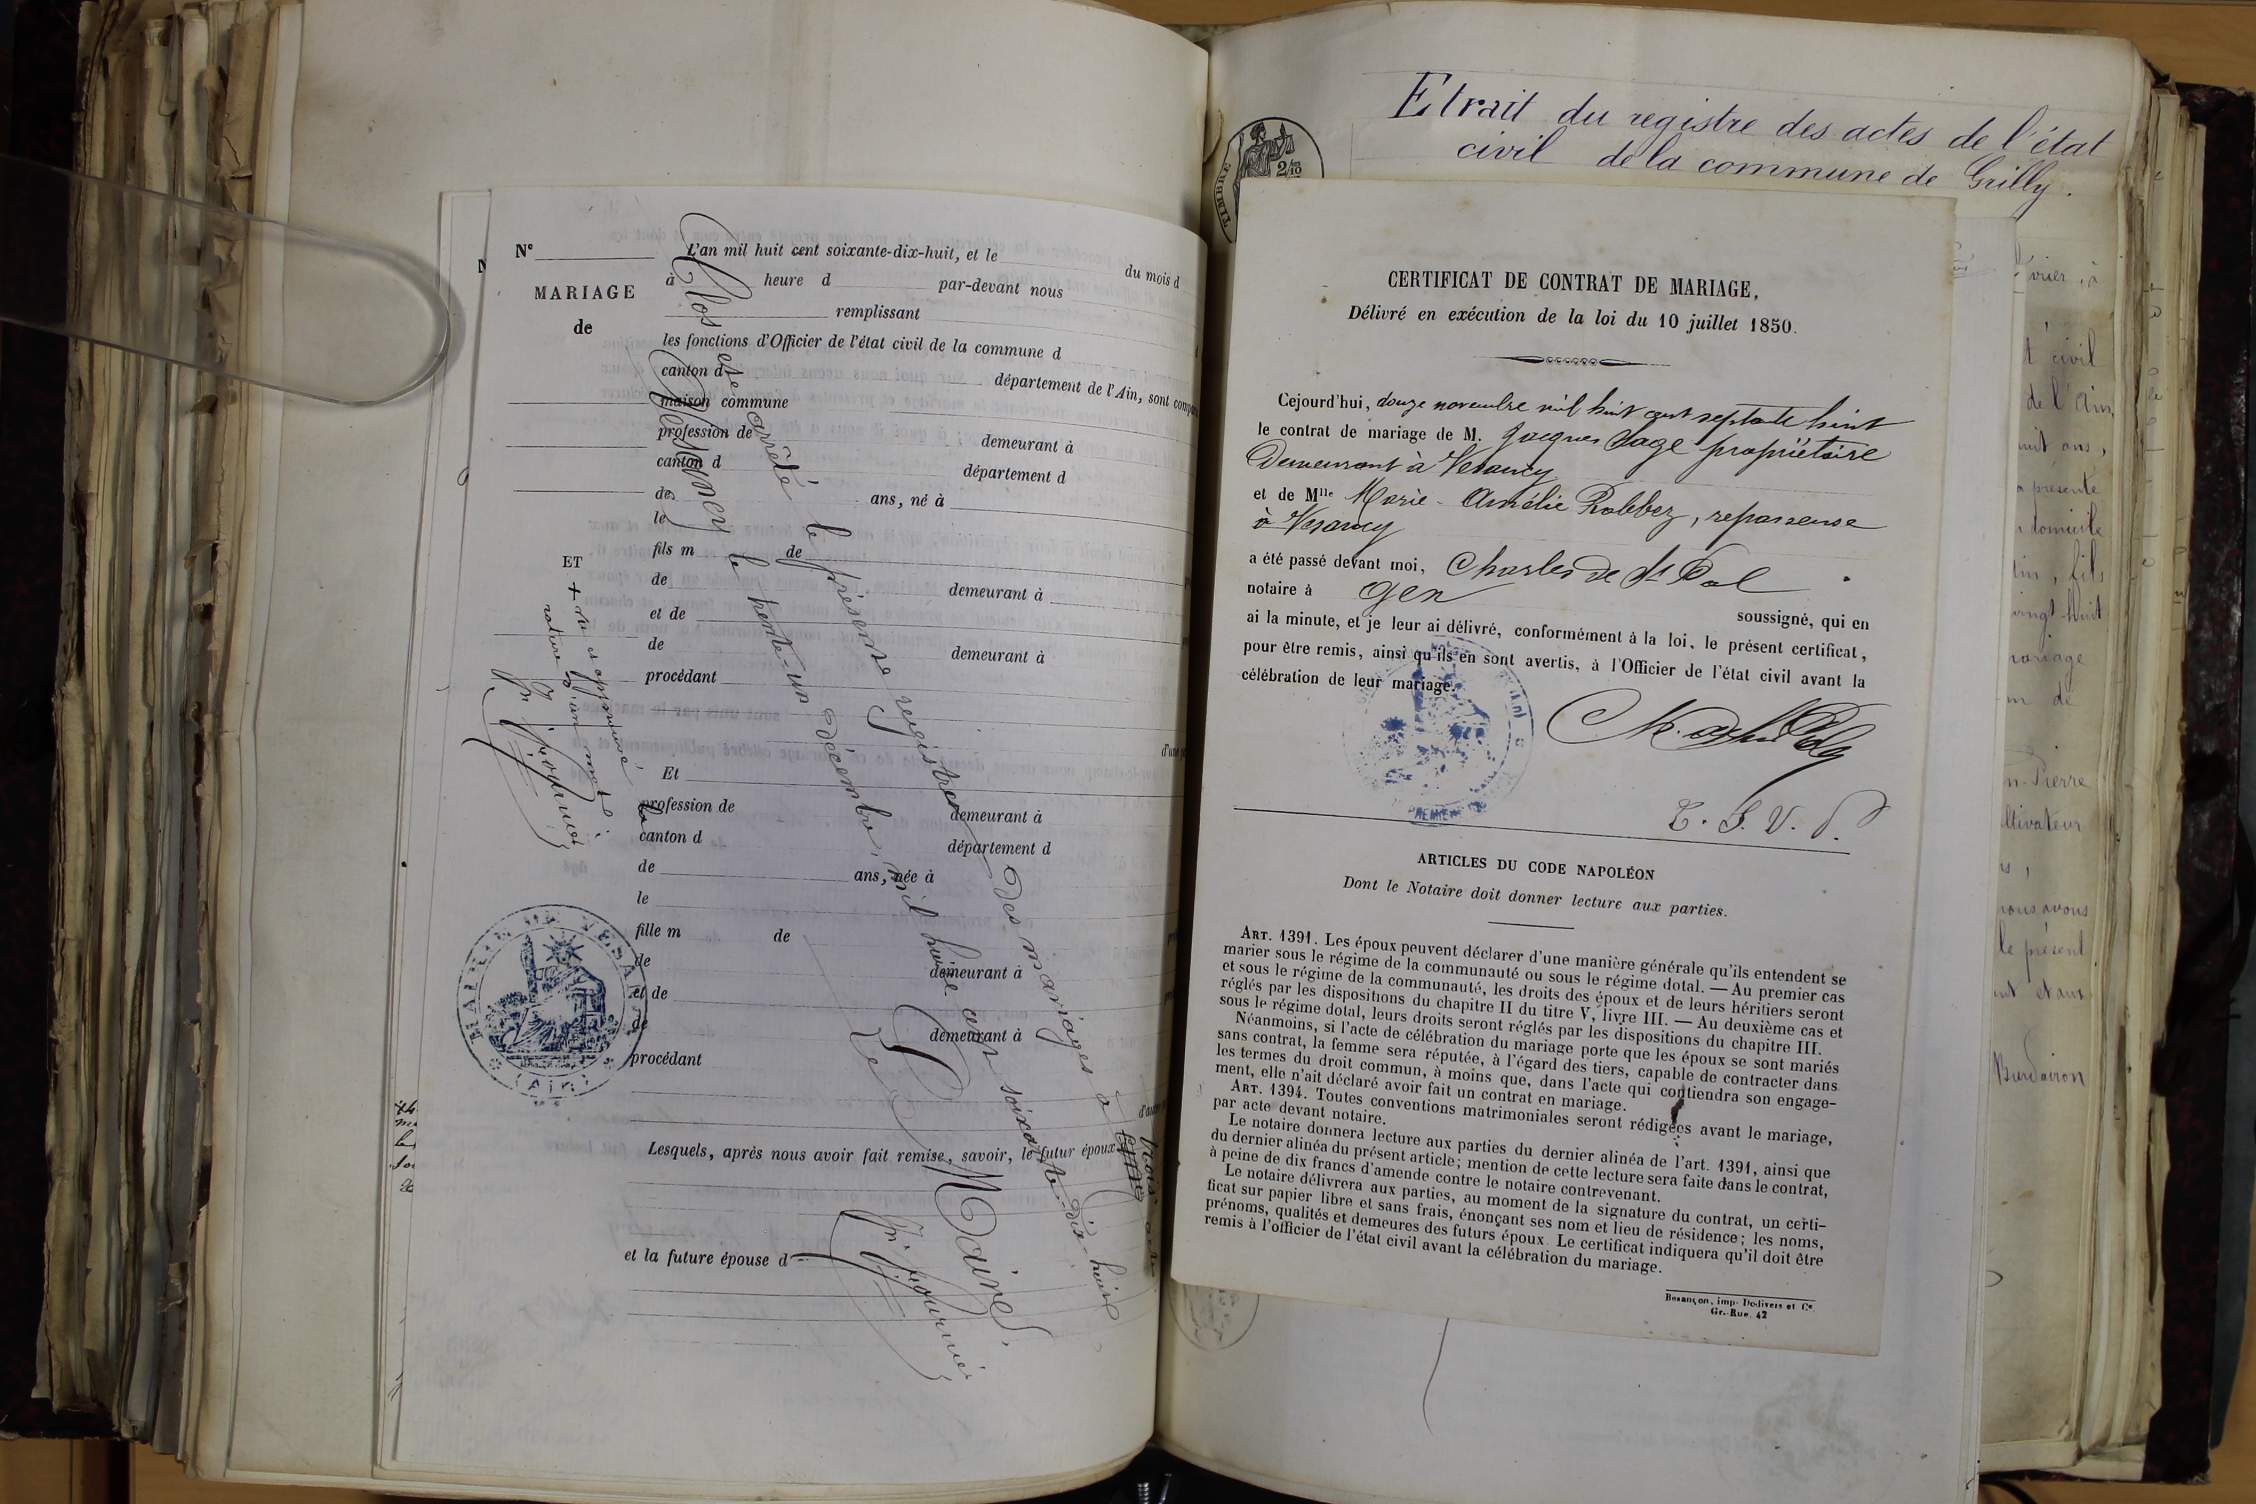 N°
MARIAGE
de
ET
L'an mil huit cent soixante-dix-huit, et le du mois d
à heure d par-devant nous
remplissant
les fonctions d'Officier de l'état civil de la commune d
canton d département de l'Ain, sont comp
maison commune
profession de demeurant à
canton d département d
de ans, né à
le
fils m de
de demeurant à
et de
de demeurant à
procédant
d'une p
Et
profession de demeurant à
canton d département d
de ans, née à
le
fille m de
de demeurant à
et de
de demeurant à
procédant
Lesquels, après nous avoir fait remise, savoir, le futur époux
et la future épouse d
Clos et arrêté le présent registre des mariages à
Vesancy le trente-un décembre, mil huit cent soixante-dix-huit
Le Maire,
+ vu et approuvé
rature d'un mot
MAIRIE DE VESANCY
(AIN)
Etrait du registre des actes de l'état
civil de la commune de Grilly.
TIMBRE
CERTIFICAT DE CONTRAT DE MARIAGE,
Délivré en exécution de la loi du 10 juillet 1850.
Cejourd'hui, douze novembre mil huit cent septante huit
le contrat de mariage de M. Jacques Sage propriétaire
Demeurant à Vesancy
et de Mlle Marie-Amélie Robbez, repasseuse
à Vesancy
a été passé devant moi, Charles de St Pol
notaire à Gex
soussigné, qui en
ai la minute, et je leur ai délivré, conformément à la loi, le présent certificat,
pour être remis, ainsi qu'ils en sont avertis, à l'Officier de l'état civil avant la
célébration de leur mariage.
T. S. V. P.
ARTICLES DU CODE NAPOLÉON
Dont le Notaire doit donner lecture aux parties.
ART. 1391. Les époux peuvent déclarer d'une manière générale qu'ils entendent se
marier sous le régime de la communauté ou sous le régime dotal. — Au premier cas
et sous le régime de la communauté, les droits des époux et de leurs héritiers seront
réglés par les dispositions du chapitre II du titre V, livre III. — Au deuxième cas et
sous le régime dotal, leurs droits seront réglés par les dispositions du chapitre III.
Néanmoins, si l'acte de célébration du mariage porte que les époux se sont mariés
sans contrat, la femme sera réputée, à l'égard des tiers, capable de contracter dans
les termes du droit commun, à moins que, dans l'acte qui contiendra son engage-
ment, elle n'ait déclaré avoir fait un contrat en mariage.
ART. 1394. Toutes conventions matrimoniales seront rédigées avant le mariage,
par acte devant notaire.
Le notaire donnera lecture aux parties du dernier alinéa de l'art. 1391, ainsi que
du dernier alinéa du présent article; mention de cette lecture sera faite dans le contrat,
à peine de dix francs d'amende contre le notaire contrevenant.
Le notaire délivrera aux parties, au moment de la signature du contrat, un certi-
ficat sur papier libre et sans frais, énonçant ses nom et lieu de résidence; les noms,
prénoms, qualités et demeures des futurs époux. Le certificat indiquera qu'il doit être
remis à l'officier de l'état civil avant la célébration du mariage.
Besançon, imp. Dodivers et Ce.
Gr.-Rue, 42
civil
de l'Ain,
ans,
présenté
domicile
fils
vingt-huit
mariage
de
n-Pierre
ultivateur
nous avons
le présent
et aux
Burdairon